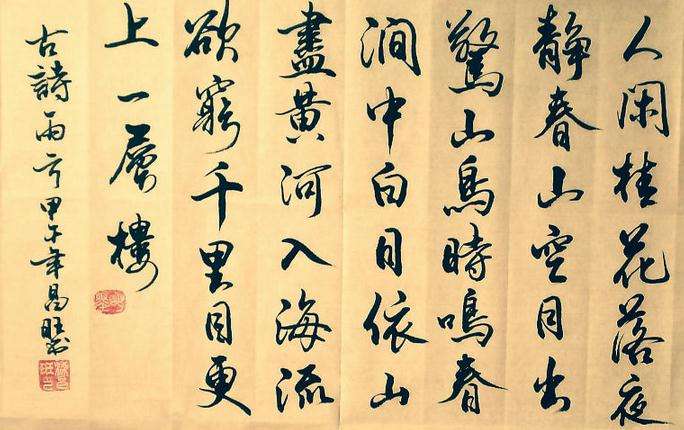 人閑桂花落夜
静春山空月出
驚山鳥時鳴春
澗中白日依山
盡黄河入海流
欲窮千里目更
上一層樓
古詩兩首甲午年昌